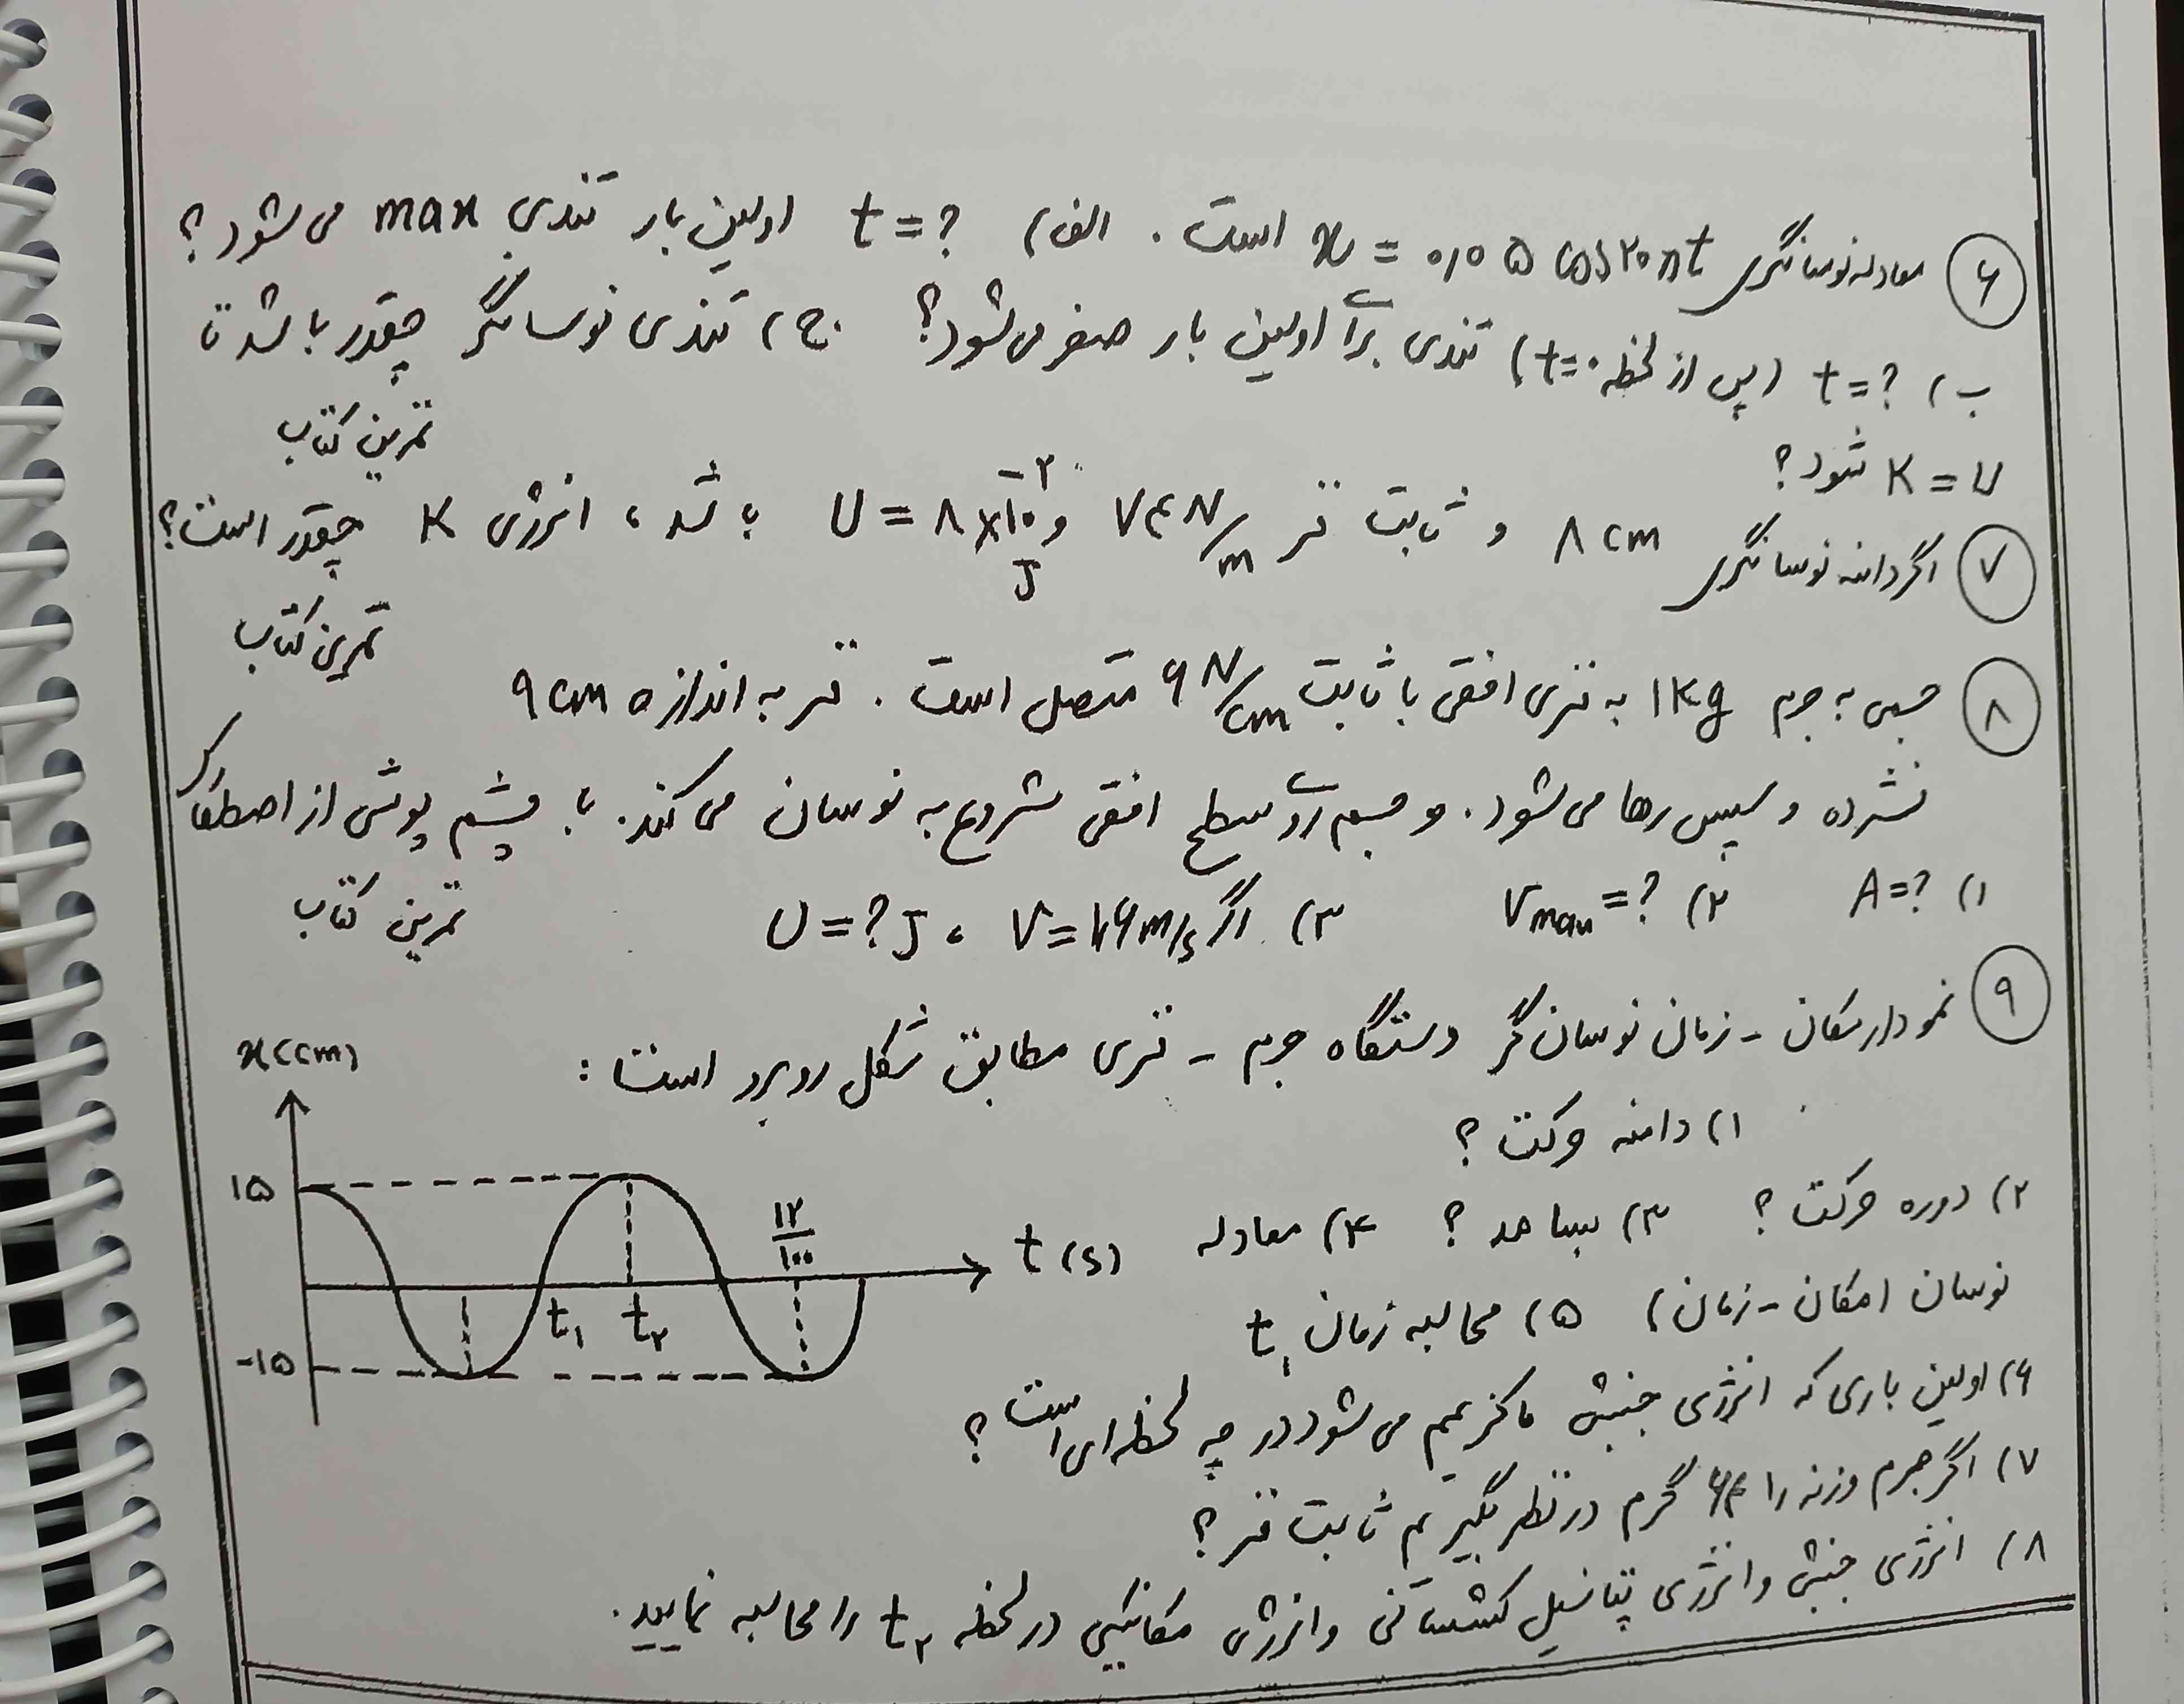 ۶ معادله نوسانگری x = ۰٫۰۵ cos ۲۰πt است. الف) t = ? اولین بار تندی max می‌شود؟
ب) t = ? (پس از لحظه t=۰) تندی برای اولین بار صفر می‌شود؟ ج) تندی نوسانگر چقدر باشد تا
K = U شود؟ تمرین کتاب
۷ اگر دامنه نوسانگری ۸ cm و ثابت فنر ۷۴ N/m و U = ۸×۱۰^-۲ J باشد، انرژی K چقدر است؟
تمرین کتاب
۸ جسمی به جرم ۱ kg به فنری افقی با ثابت ۶ N/cm متصل است. فنر به اندازه ۹ cm
فشرده و سپس رها می‌شود. و جسم روی سطح افقی شروع به نوسان می‌کند. با چشم پوشی از اصطکاک
۱) A = ? ۲) Vmax = ? ۳) اگر V = ۱٫۶ m/s ، U = ? J تمرین کتاب
۹ نمودار مکان - زمان نوسان‌گر دستگاه جرم - فنری مطابق شکل روبرو است :
۱) دامنه حرکت ؟
۲) دوره حرکت ؟ ۳) بسامد ؟ ۴) معادله
نوسان (مکان - زمان) ۵) محاسبه زمان t۱
۶) اولین باری که انرژی جنبشی ماکزیمم می‌شود در چه لحظه‌ای است ؟
۷) اگر جرم وزنه را ۶۴ گرم در نظر بگیریم ثابت فنر ؟
۸) انرژی جنبشی و انرژی پتانسیل کشسانی و انرژی مکانیکی در لحظه t۲ را محاسبه نمایید.
x(cm)
۱۵
-۱۵
t۱
t۲
۱۲/۱۰۰
t(s)